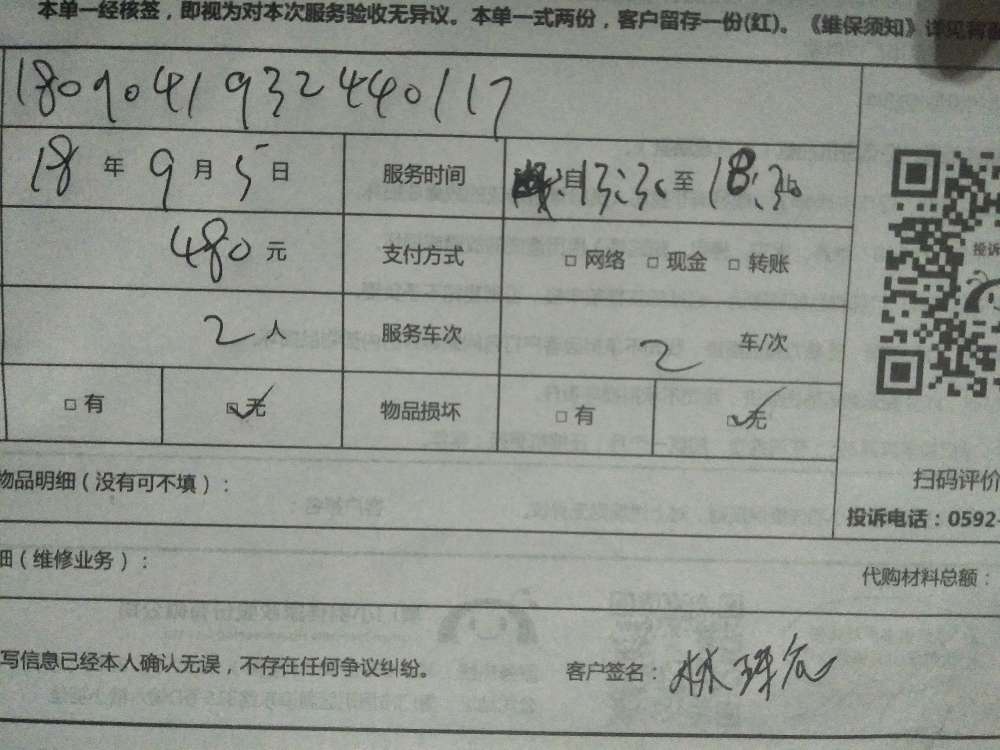 本单一经核签，即视为对本次服务验收无异议。本单一式两份，客户留存一份(红)。《维保须知》详见背面
180904193244011７
18 年 9 月 5 日 服务时间 自 13:30 至 18:30
480 元 支付方式 □ 网络 □ 现金 □ 转账
2 人 服务车次 2 车/次
□ 有 ☑ 无 物品损坏 □ 有 ☑ 无
物品明细（没有可不填）：
扫码评价
投诉电话：0592-
细（维修业务）：
代购材料总额：
写信息已经本人确认无误，不存在任何争议纠纷。 客户签名：林
投诉